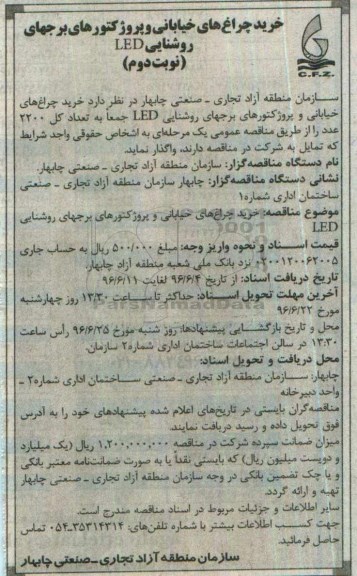 خرید چراغ‌های خیابانی و پروژکتورهای برجهای
روشنایی LED
(نوبت دوم)
C.F.Z.
سازمان منطقه آزاد تجاری ـ صنعتی چابهار در نظر دارد خرید چراغ‌های
خیابانی و پروژکتورهای برجهای روشنایی LED جمعاً به تعداد کل ۲۲۰۰
عدد را از طریق مناقصه عمومی یک مرحله‌ای به اشخاص حقوقی واجد شرایط
که تمایل به شرکت در مناقصه دارند، واگذار نماید.
نام دستگاه مناقصه‌گزار: سازمان منطقه آزاد تجاری ـ صنعتی چابهار.
نشانی دستگاه مناقصه‌گزار: چابهار سازمان منطقه آزاد تجاری ـ صنعتی
ساختمان اداری شماره۱
موضوع مناقصه: خرید چراغ‌های خیابانی و پروژکتورهای برجهای روشنایی
LED
قیمت اسناد و نحوه واریز وجه: مبلغ ۵۰۰/۰۰۰ ریال به حساب جاری
۰۲۰۰۱۲۰۰۶۲۰۰۵ نزد بانک ملی شعبه منطقه آزاد چابهار.
تاریخ دریافت اسناد: از تاریخ ۹۶/۶/۴ لغایت ۹۶/۶/۱۱
آخرین مهلت تحویل اسناد: حداکثر تا ساعت ۱۳:۳۰ روز چهارشنبه
مورخ ۹۶/۶/۲۲
محل و تاریخ بازگشایی پیشنهادها: روز شنبه مورخ ۹۶/۶/۲۵ رأس ساعت
۱۳:۳۰ در سالن اجتماعات ساختمان اداری شماره۲ سازمان.
محل دریافت و تحویل اسناد:
چابهار: سازمان منطقه آزاد تجاری ـ صنعتی ـ ساختمان اداری شماره۲ ـ
واحد دبیرخانه
مناقصه‌گران بایستی در تاریخ‌های اعلام شده پیشنهادهای خود را به آدرس
فوق تحویل داده و رسید دریافت نمایند.
میزان ضمانت سپرده شرکت در مناقصه ۱,۲۰۰,۰۰۰,۰۰۰ ریال (یک میلیارد
و دویست میلیون ریال) که بایستی نقداً یا به صورت ضمانت‌نامه معتبر بانکی
و یا چک تضمین بانکی در وجه سازمان منطقه آزاد تجاری ـ صنعتی چابهار
تهیه و ارائه گردد.
سایر اطلاعات و جزئیات مربوط در اسناد مناقصه مندرج است.
جهت کسب اطلاعات بیشتر با شماره تلفن‌های: ۳۵۳۱۴۳۱۴-۰۵۴ تماس
حاصل فرمائید.
سازمان منطقه آزاد تجاری ـ صنعتی چابهار